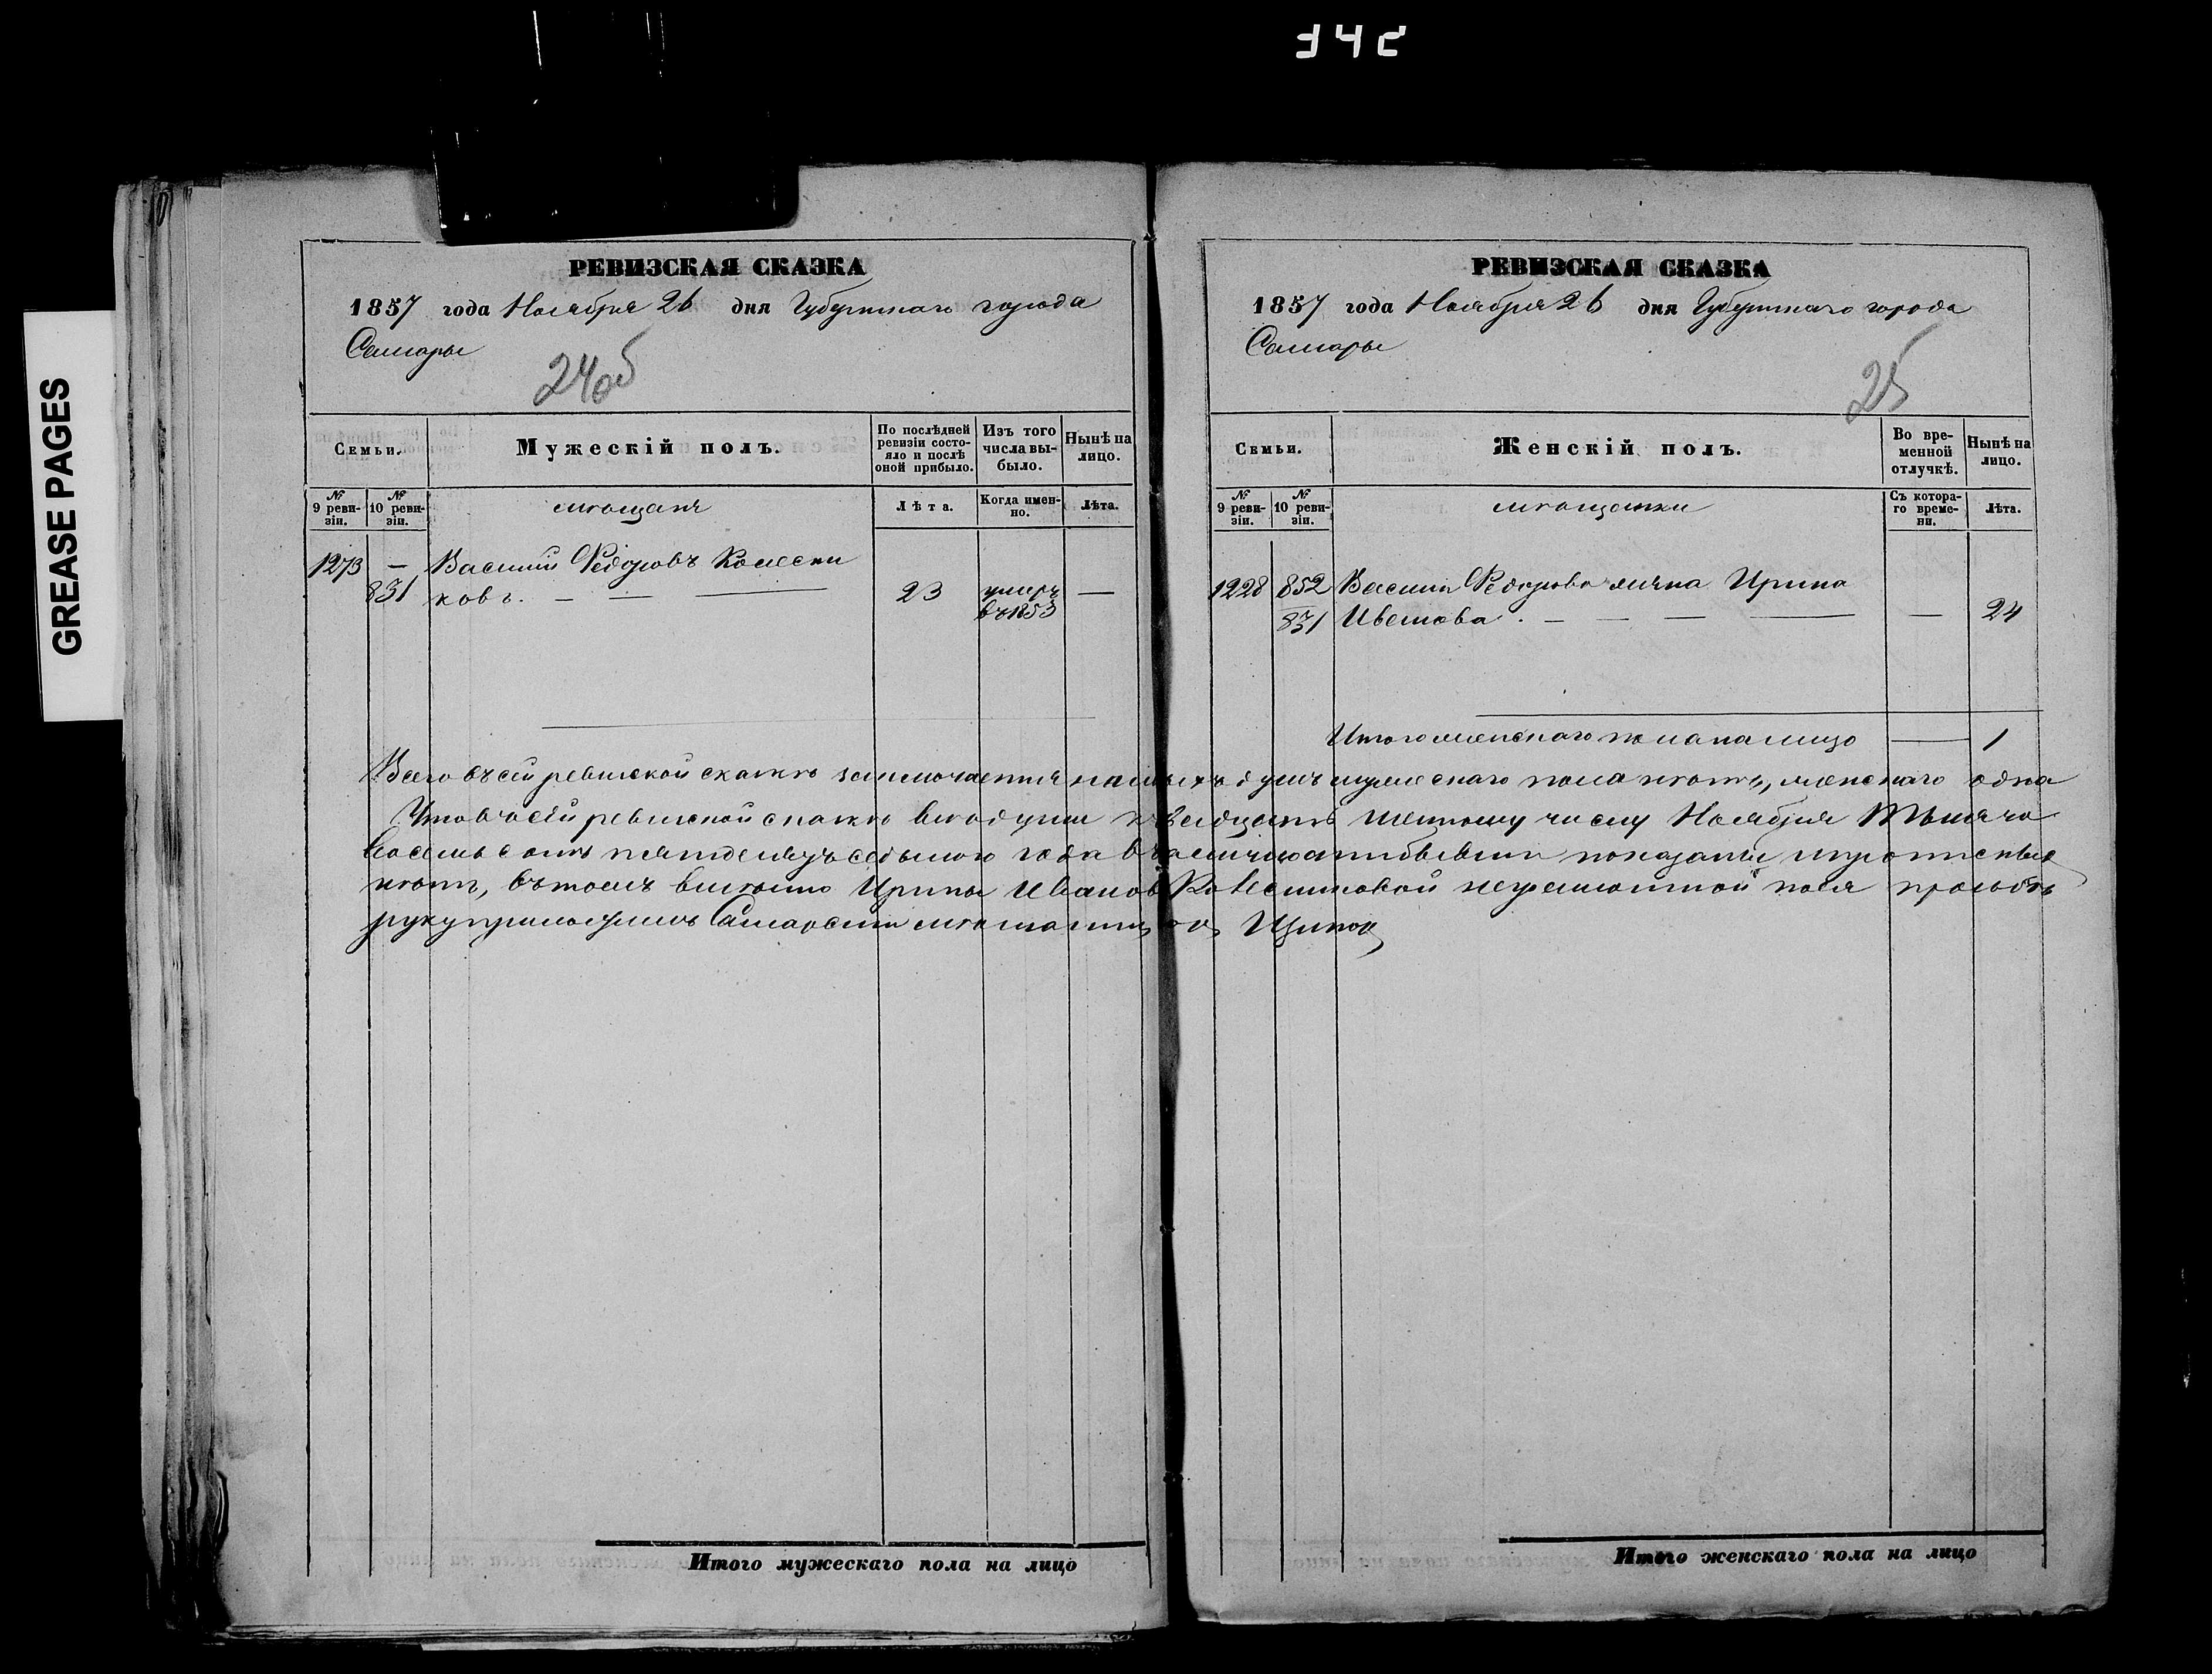 GREASE PAGES
РЕВИЗСКАЯ СКАЗКА
1857 года Ноября 26 дня Губернскаго города
Самары
24 об
Семьи.
Мужескій полъ.
По послѣдней ревизіи состояло и послѣ оной прибыло.
Изъ того числа выбыло.
Нынѣ на лицо.
№ 9 ревизіи.
№ 10 ревизіи.
мѣщане
Лѣта.
Когда именно.
Лѣта.
1273 — Василий Федоровъ Колесни
831 ковъ. — — — 23 умеръ въ 1853 —
РЕВИЗСКАЯ СКАЗКА
1857 года Ноября 26 дня Губернскаго города
Самары
25
Семьи.
Женскій полъ.
Во временной отлучкѣ.
Нынѣ на лицо.
№ 9 ревизіи.
№ 10 ревизіи.
мѣщанки
Съ котораго времени.
Лѣта.
1228 852 Василия Федорова жена Ирина
831 Иванова. — — — — — 24
Итого женскаго пола на лицо — 1
Всего въ сей ревизской сказкѣ заключается наличныхъ душъ мужескаго пола нѣтъ, женскаго одна
Что въ сей ревизской сказкѣ всѣ души къ двадцать шестому числу Ноября тысяча
восемь сотъ пятьдесятъ седьмого года въ наличности бывшия показаны и пропускныхъ
нѣтъ, въ томъ вмѣсто Ирины Ивановой Колесниковой неграмотной по ея прозьбѣ
руку приложилъ Самарский мѣщанинъ
Итого мужескаго пола на лицо
Итого женскаго пола на лицо